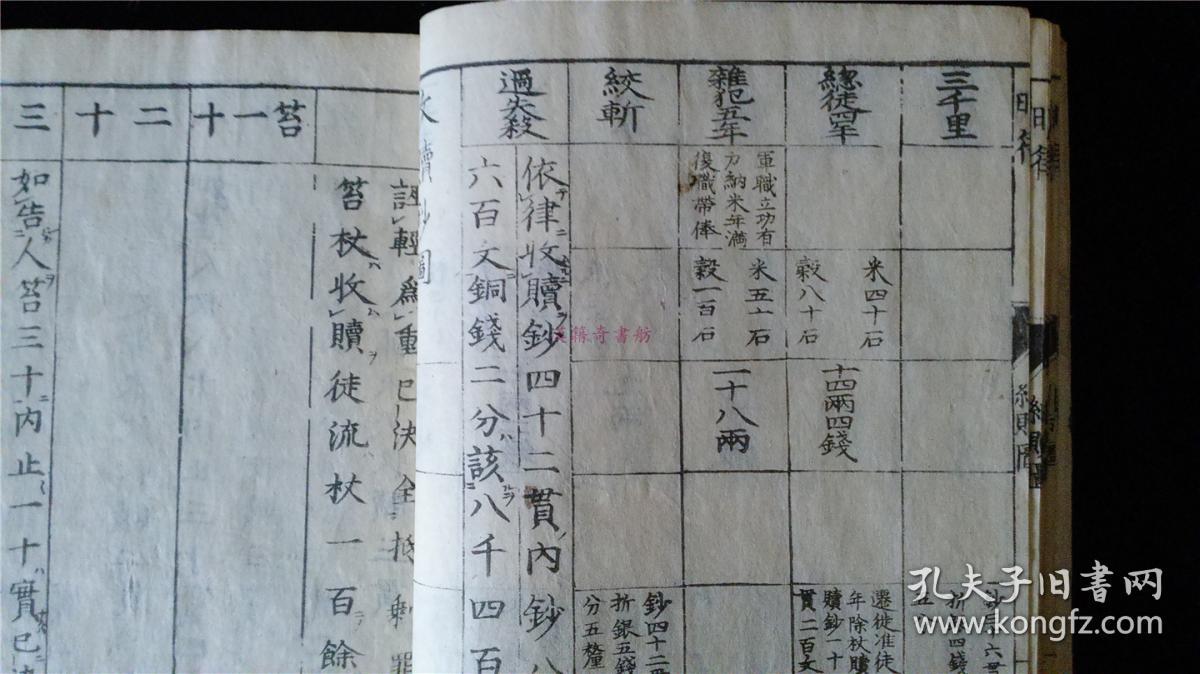 三千里
總徒四年
米四十石
穀八十石
十四兩四錢
遷徙准徒
年除杖贖
贖鈔一十
貫二百文
雜犯五年
軍職立功有
力納米年滿
復職帶俸
米五十石
穀一百石
一十八兩
絞斬
鈔四十二
折銀五錢
分五釐
過失殺
依律收贖鈔四十二貫內鈔八
六百文銅錢二分該八千四百
收贖鈔圖
誣輕為重已決全抵剩罪
笞杖收贖徒流杖一百餘
笞一十
二十
三
如告人笞三十內止一十實已
納贖圖
籍奇書舫
孔夫子旧書网
www.kongfz.com